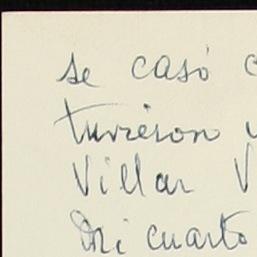 se casó
tuvieron
Villar V
Mi cuarto